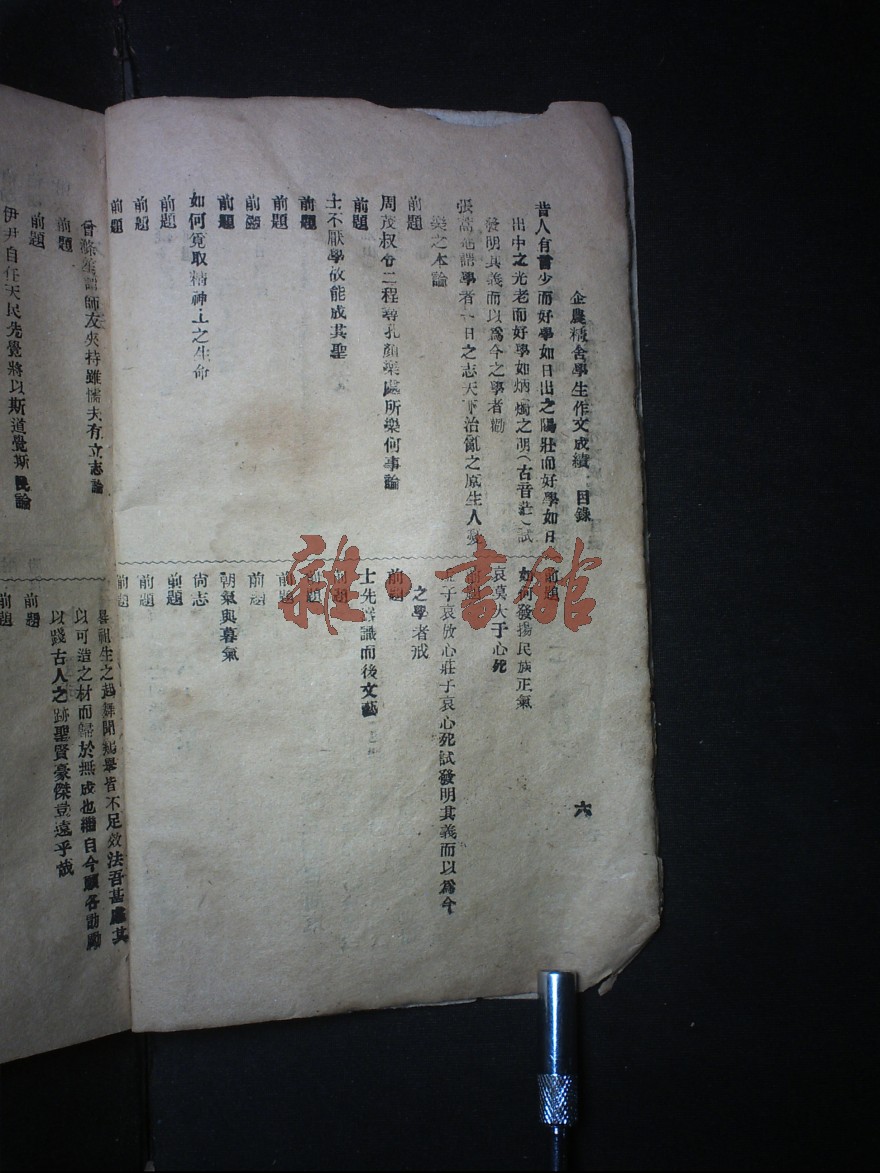 企農精舍學生作文成績 目錄
六
昔人有言少而好學如日出之陽壯而好學如日
出中之光老而好學如炳燭之明（古音茫）試
發明其義而以爲今之學者勸
張蒿菴謂學者一日之志天下治亂之原生人憂
樂之本論
前題
周茂叔令二程尋孔顏樂處所樂何事論
前題
士不厭學故能成其聖
前題
前題
前題
前題
如何覓取精神上之生命
前題
前題
前題
前題
如何發揚民族正氣
哀莫大于心死
前題
孟子哀放心莊子哀心死試發明其義而以爲今
之學者戒
前題
士先器識而後文藝
前題
前題
前題
前題
朝氣與暮氣
尙志
前題
前題
前題
曾滌笙謂師友夾持雖懦夫有立志論
前題
前題
伊尹自任天民先覺將以斯道覺斯民論
皆不足效法吾甚慮其
以可造之材而歸於無成也繼自今願各勖勵
以踐古人之跡聖賢豪傑豈遠乎哉
前題
前題
雜·書館